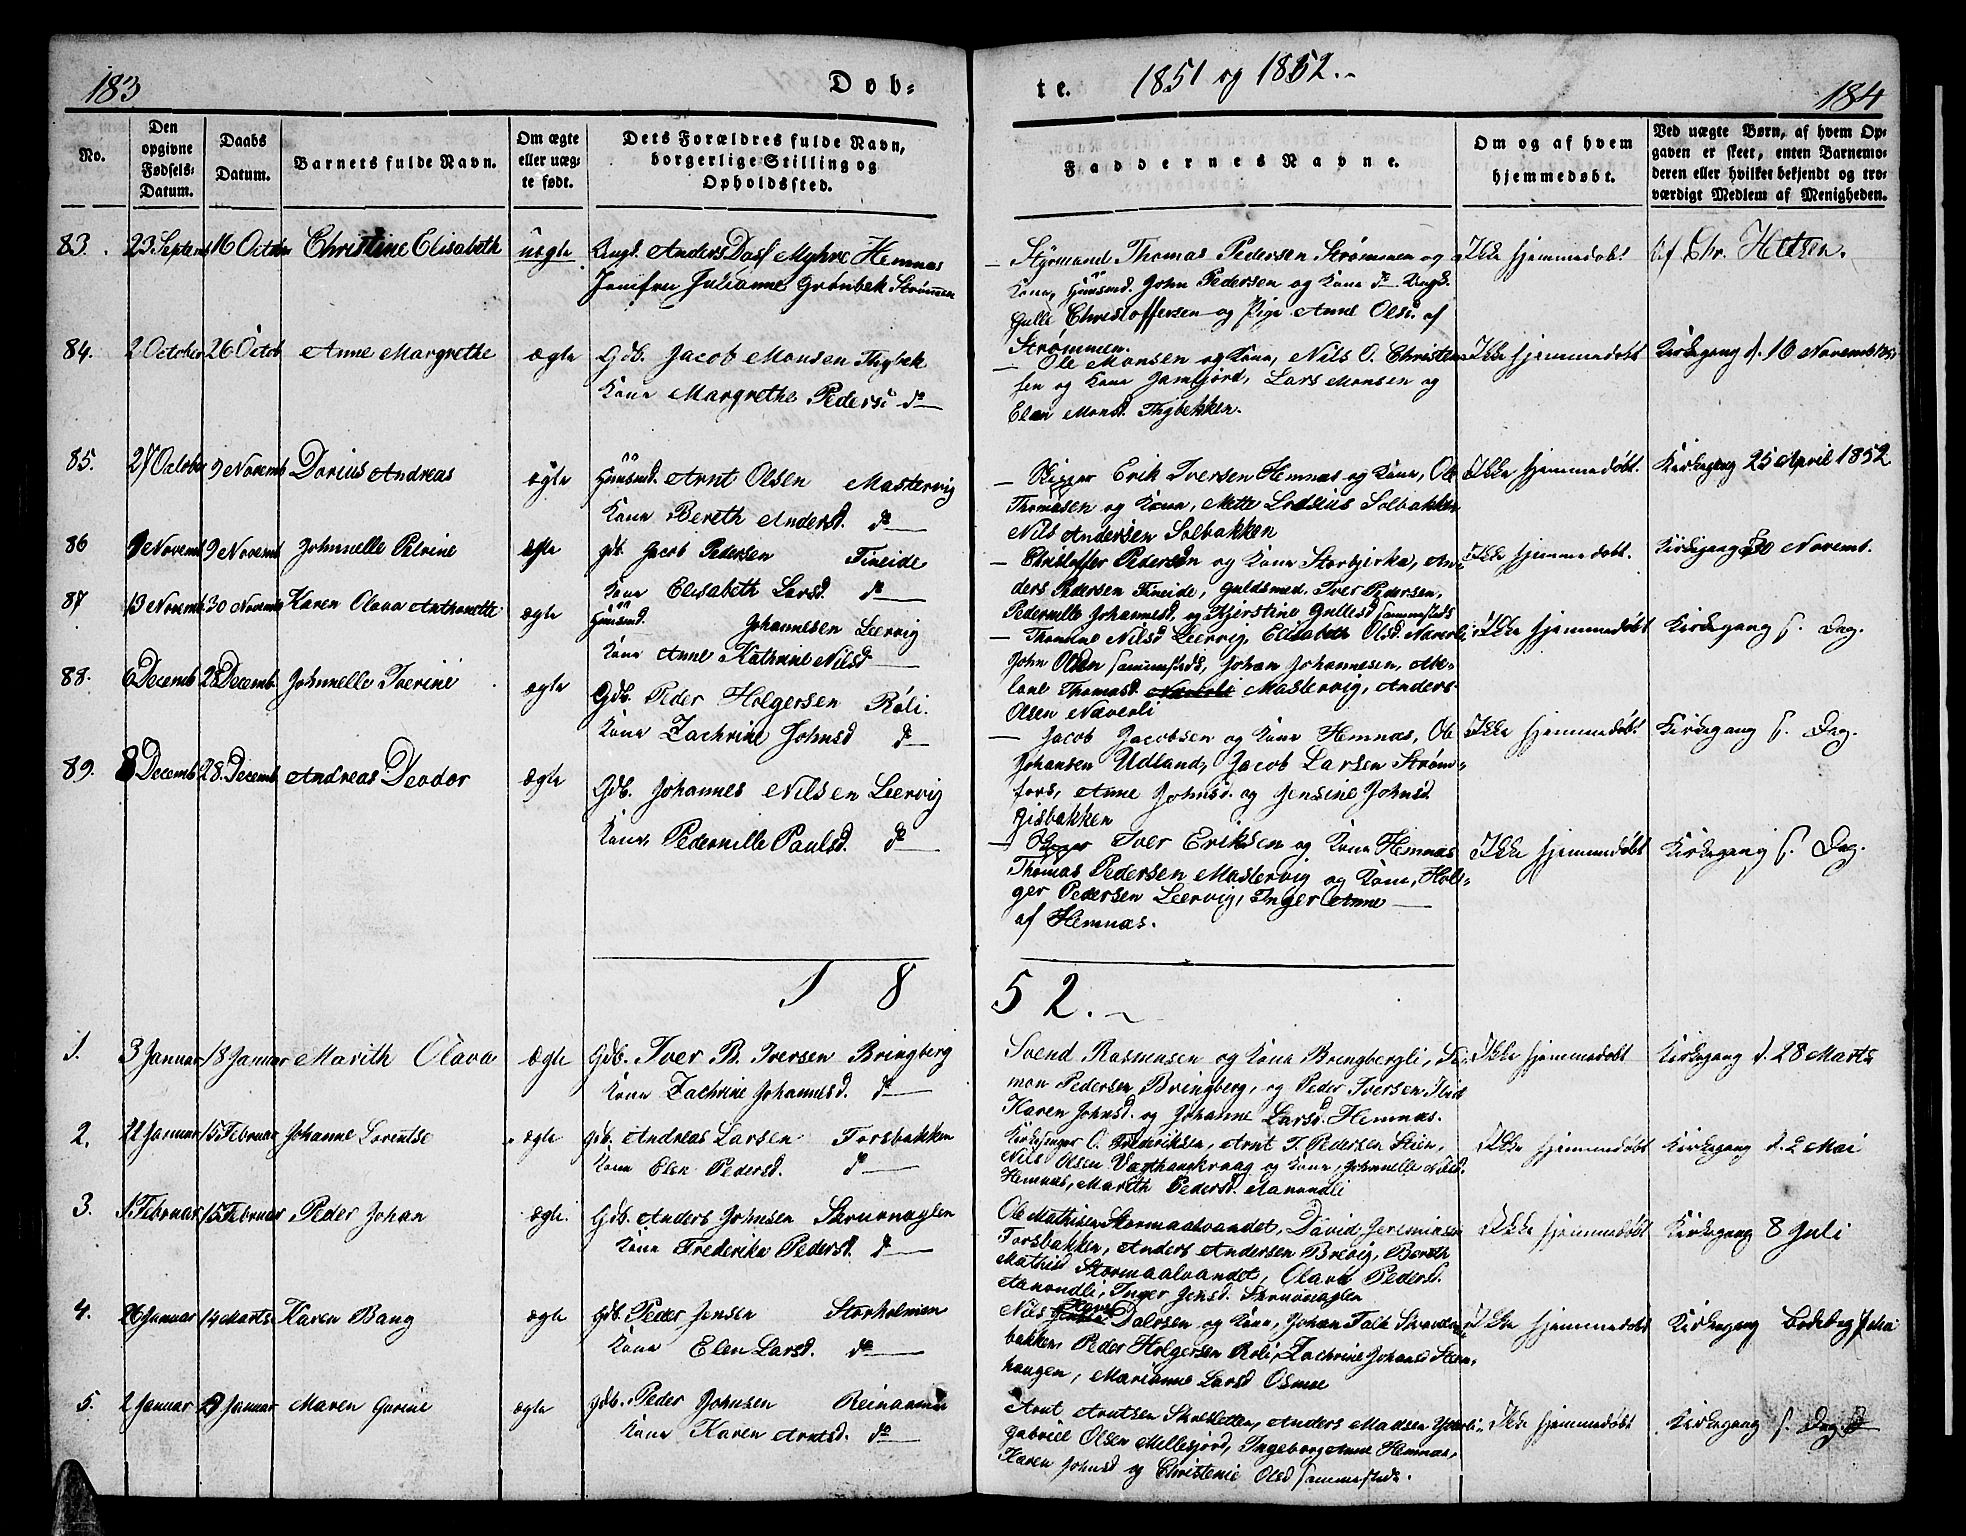 183
Døb-
te.
1851 og 1852.
184
No.
Den opgivne Fødsels-Datum.
Daabs Datum.
Barnets fulde Navn.
Om ægte eller uæg-te født.
Dets Forældres fulde Navn, borgerlige Stilling og Opholdssted.
Faddernes Navne.
Om og af hvem hjemmedøbt.
Ved uægte Børn, af hvem Op-gaven er skeet, enten Barnemo-deren eller hvilket bekjendt og tro-værdigt Medlem af Menigheden.
83. 23 Septemb 16 Octobr Christine Elisabeth uægte Ungk. Anders Dass Myhre Hemnæs
Jomfru Julianne Grønbek Strømmen
Styrmand Thomas Pedersen Strømmen og
Kone, Huusmd. John Pedersen og Kone do Ungk.
Gulle Christoffersen og Pige Anne Olsd. af
Strømmen.
Ikke hjemmedøbt
Chr. Heltzen.
84. 2 October 26 Octob Anne Margrethe ægte Gdb. Jacob Monsen Thybek
Kone Margrethe Pedersd do
Ole Monsen og Kone, Nils O. Christen-
sen og Kone Jamfjord, Lars Monsen og
Elen Monsd. Thybekken.
Ikke hjemmedøbt
Kirkegang d. 16 Novemb.
85. 27 October 9 Novemb Dorius Andreas ægte Huusmd. Arnt Olsen Mastervig
Kone Bereth Andersd. do
Skipper Erik Iversen Hemnæs og Kone, Ole
Thomasen og Kone, Mette Solbakken
Nils Andersen Solbakken
Ikke hjemmedøbt.
Kirkegang 25 April 1852
86 9 Novemb 9 Novemb Johnnelle Petrine ægte Gdb. Jacob Pedersen Fineide
Kone Elisabeth Larsd do
Christoffer Pedersen og Kone Storbjerka, An-
ders Pedersen Fineide, Guldsmed. Iver Pedersen,
Pedernelle Johannesd, og Kjerstine Gullesd sammesteds
Ikke hjemmedøbt.
Kirkegang 30 Novemb.
87 13 Novemb 30 Novemb Karen Olava Anthonette ægte Huusmd. Johannesen Leervig
Kone Anne Kathrine Nilsd
Thomine Nilsd Leervig, Elisabeth Olsd. Naverli
John Olsen sammesteds, Johan Johannesen, Abe-
lone Thomasd. Mastervig, Anders
Olsen Naverli
Ikke hjemmedøbt
Kirkegang s. Dag.
88. 6 Decemb 28 Decemb Johnnelle Iverine ægte Gdb. Peder Holgersen Røli.
Kone Zachrine Johnsd do
Jacob Jacobsen og Kone Hemnæs, Ole
Johansen Udland, Jacob Larsen Strøm-
fors, Anne Johnsd. og Jensine Johnsd.
Gisbakken
Ikke hjemmedøbt.
Kirkegang s. Dag.
89. 8 Decemb 28. Decemb Andreas Deodor ægte Gdb. Johannes Nilsen Leervig
Kone Pedernille Paulsd. do
Skipper Iver Eriksen og Kone Hemnæs
Thomas Pedersen Mastervig og Kone, Hol-
ger Pedersen Leervig, Inger Anne
af Hemnæs.
Ikke hjemmedøbt
Kirkegang s. Dag.
1852.
1. 3 Januar 18 Januar Marith Olava ægte Gdb. Iver B. Iversen Bringberg
Kone Zachrine Johannesd. do
Svend Rasmusen og Kone Bringbergli, Si-
mon Pedersen Bringberg, og Peder Iversen
Karen Johnsd. og Johanne Larsd. Hemnæs.
Ikke hjemmedøbt
Kirkegang d. 28 Marts
2. 22 Januar 15 Februar Johanne Lorentse ægte Gdb. Andreas Larsen Forsbakken
Kone Elen Pedersd. do
Kirkesanger O. Frederiksen, Arnt J. Pedersen Stien,
Nils Olsen og Kone, Johnnelle Nilsd.
Hemnæs, Mareth Pedersd. Aanondli
Ikke hjemmedøbt
Kirkegang d. 2 Mai
3. 1 Februar 15 Februar Peder Johan ægte. Gdb. Anders Johnsen Skruvnaglen
Kone Frederike Pedersd. do
Ole Mathisen Stormaalvandet, David Jeremiasen
Forsbakken, Anders Andersen Brevig, Bereth
Mathisd Stormaalvandet, Olava Pedersd.
Aanondli, Inger Jensd. Skruvnaglen
Ikke hjemmedøbt
Kirkegang 8 Juli
4. 26 Januar 14 Marts Karen Bang ægte Gdb. Peder Jensen Storholmen
Kone Elen Larsd. do
Nils Dalosen og Kone, Johan Falk
bakken, Peder Holgersen Røli, Zachrine Johansd Steen-
haugen, Marianne Larsd Osmoe
Ikke hjemmedøbt
Kirkegang
5. 2 Januar Januar Maren Gurine ægte Gdb. Peder Johnsen Reinaamoe
Kone Karen Arntsd. do
Arnt Arntsen Skresletten, Anders Madsen Ytterli
Gabriel Olsen Millesjord, Ingeborg Anne Hemnæs,
Karen Johnsd og Christenie Olsd sammesteds.
Ikke hjemmedøbt
Kirkegang s. Dag